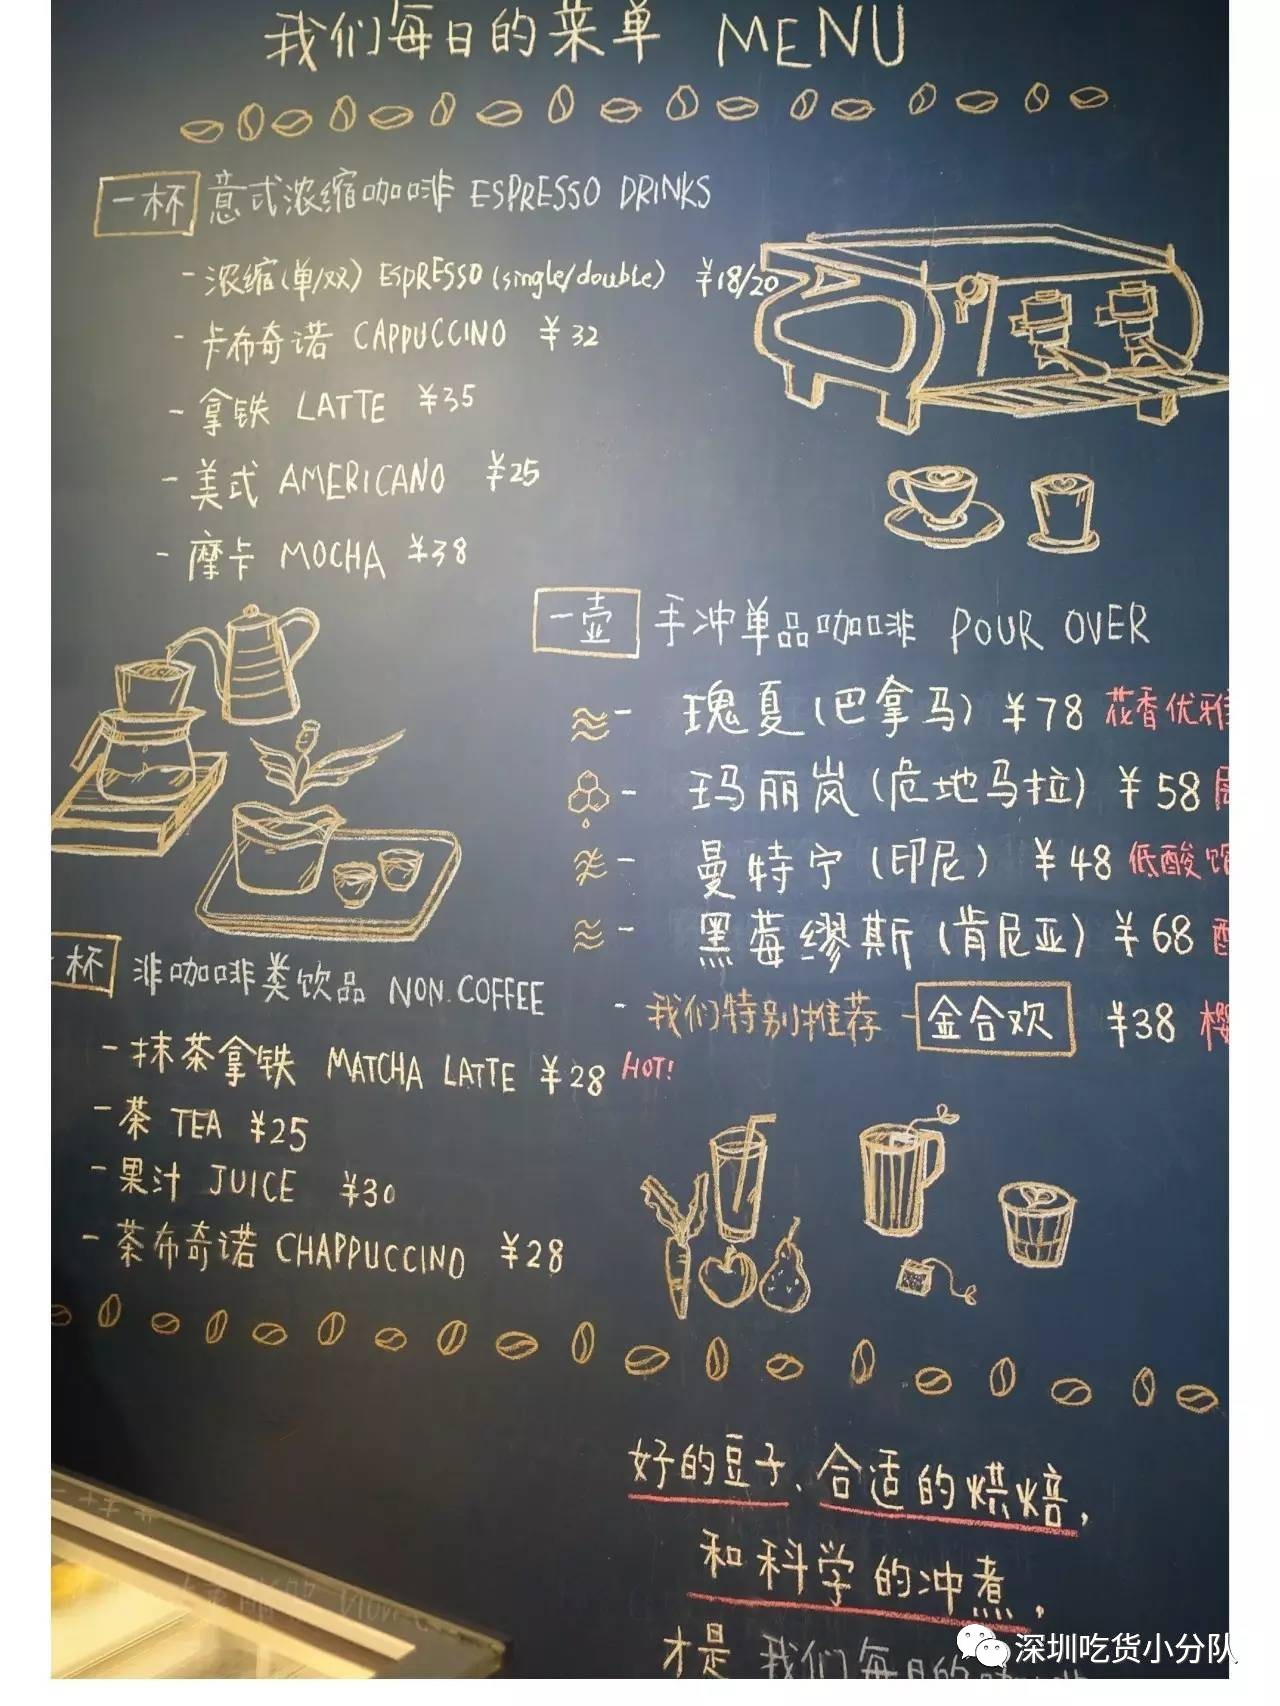 我们每日的菜单 MENU
一杯 意式浓缩咖啡 ESPRESSO DRINKS
- 浓缩(单/双) ESPRESSO (single/double) ¥18/20
- 卡布奇诺 CAPPUCCINO ¥32
- 拿铁 LATTE ¥35
- 美式 AMERICANO ¥25
- 摩卡 MOCHA ¥38
一壶 手冲单品咖啡 POUR OVER
- 瑰夏(巴拿马) ¥78 花香优雅
- 玛丽岚(危地马拉) ¥58
- 曼特宁(印尼) ¥48 低酸
- 黑莓缪斯(肯尼亚) ¥68
- 我们特别推荐 - 金合欢 ¥38 樱
一杯 非咖啡类饮品 NON.COFFEE
- 抹茶拿铁 MATCHA LATTE ¥28 HOT!
- 茶 TEA ¥25
- 果汁 JUICE ¥30
- 茶布奇诺 CHAPPUCCINO ¥28
好的豆子、合适的烘焙,
和科学的冲煮,
才是 我们每日的咖啡
深圳吃货小分队